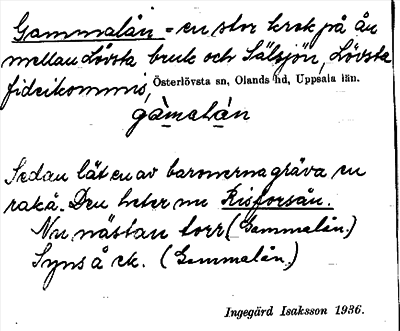 Gammalån = en stor krok på ån
mellan Lövsta bruk och Sälsjön, Lövsta
fideikommis, Österlövsta sn, Olands hd, Uppsala län.
gàmalån
Sedan lät en av baronerna gräva en
rak å. Den heter nu Risforsån.
Nu nästan torr (Gammalån.)
Syns å ek. (Gammalån.)
Ingegärd Isaksson 1936.